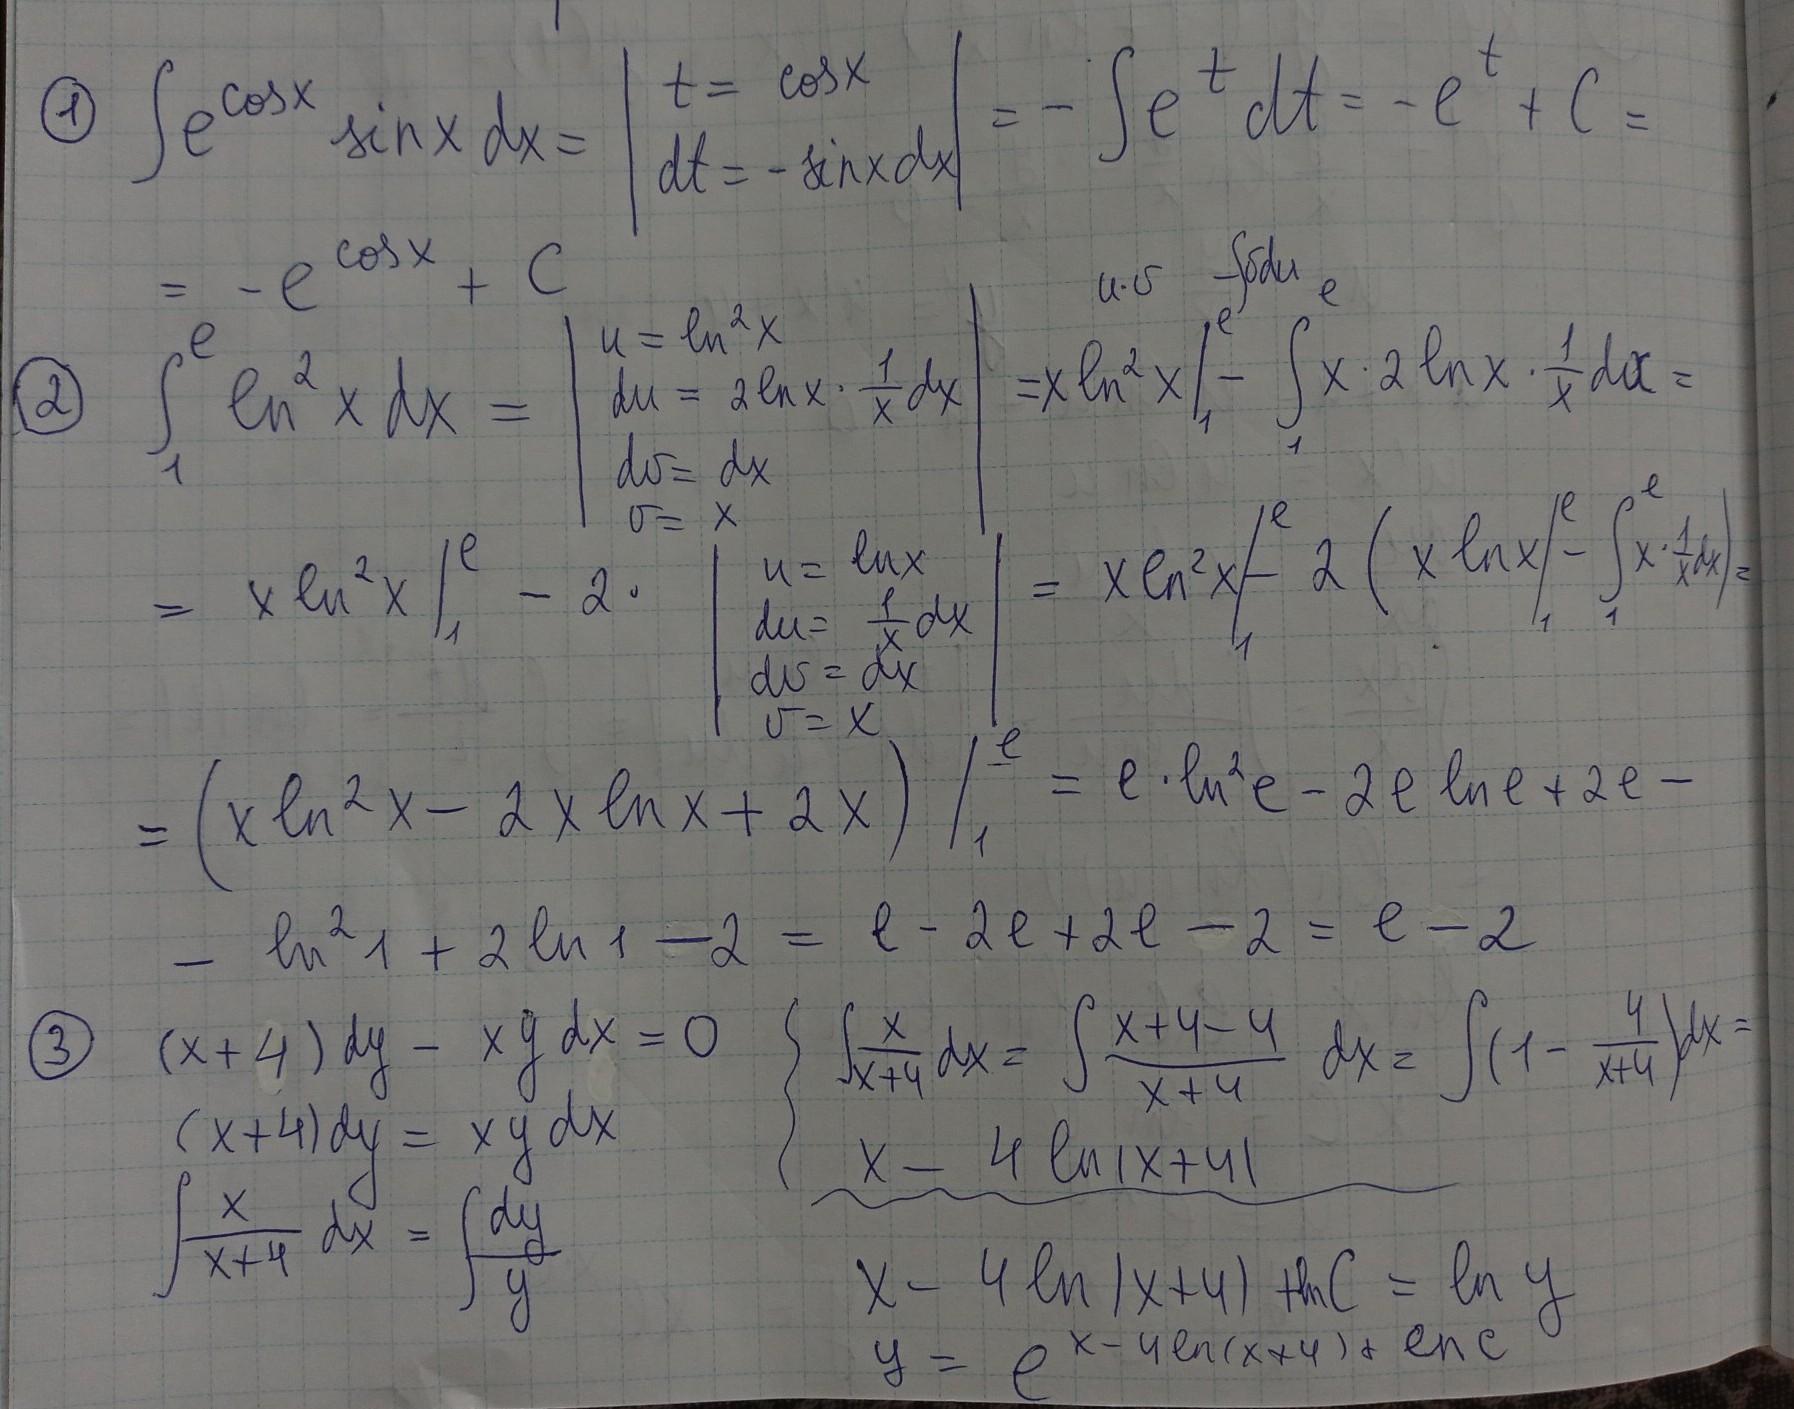 ① ∫e^{cosx} sinx dx = | t = cosx  dt = -sinx dx | = -∫e^t dt = -e^t + C =
= -e^{cosx} + C
② ∫_1^e ln²x dx = | u = ln²x  du = 2lnx · 1/x dx  dv = dx  v = x | = x ln²x |_1^e - ∫_1^e x · 2 lnx · 1/x dx =
u·v - ∫vdu
= x ln²x |_1^e - 2 · | u = lnx  du = 1/x dx  dv = dx  v = x | = x ln²x |_1^e - 2 ( x lnx |_1^e - ∫_1^e x · 1/x dx ) =
= ( x ln²x - 2x lnx + 2x ) |_1^e = e · ln²e - 2e lne + 2e -
- ln²1 + 2 ln1 - 2 = e - 2e + 2e - 2 = e - 2
③ (x+4)dy - xy dx = 0
(x+4)dy = xy dx
∫ x/(x+4) dx = ∫ dy/y
{ ∫ x/(x+4) dx = ∫ (x+4-4)/(x+4) dx = ∫(1 - 4/(x+4))dx =
x - 4 ln|x+4|
x - 4 ln|x+4| + lnC = ln y
y = e^{x-4ln(x+4)+lnc}